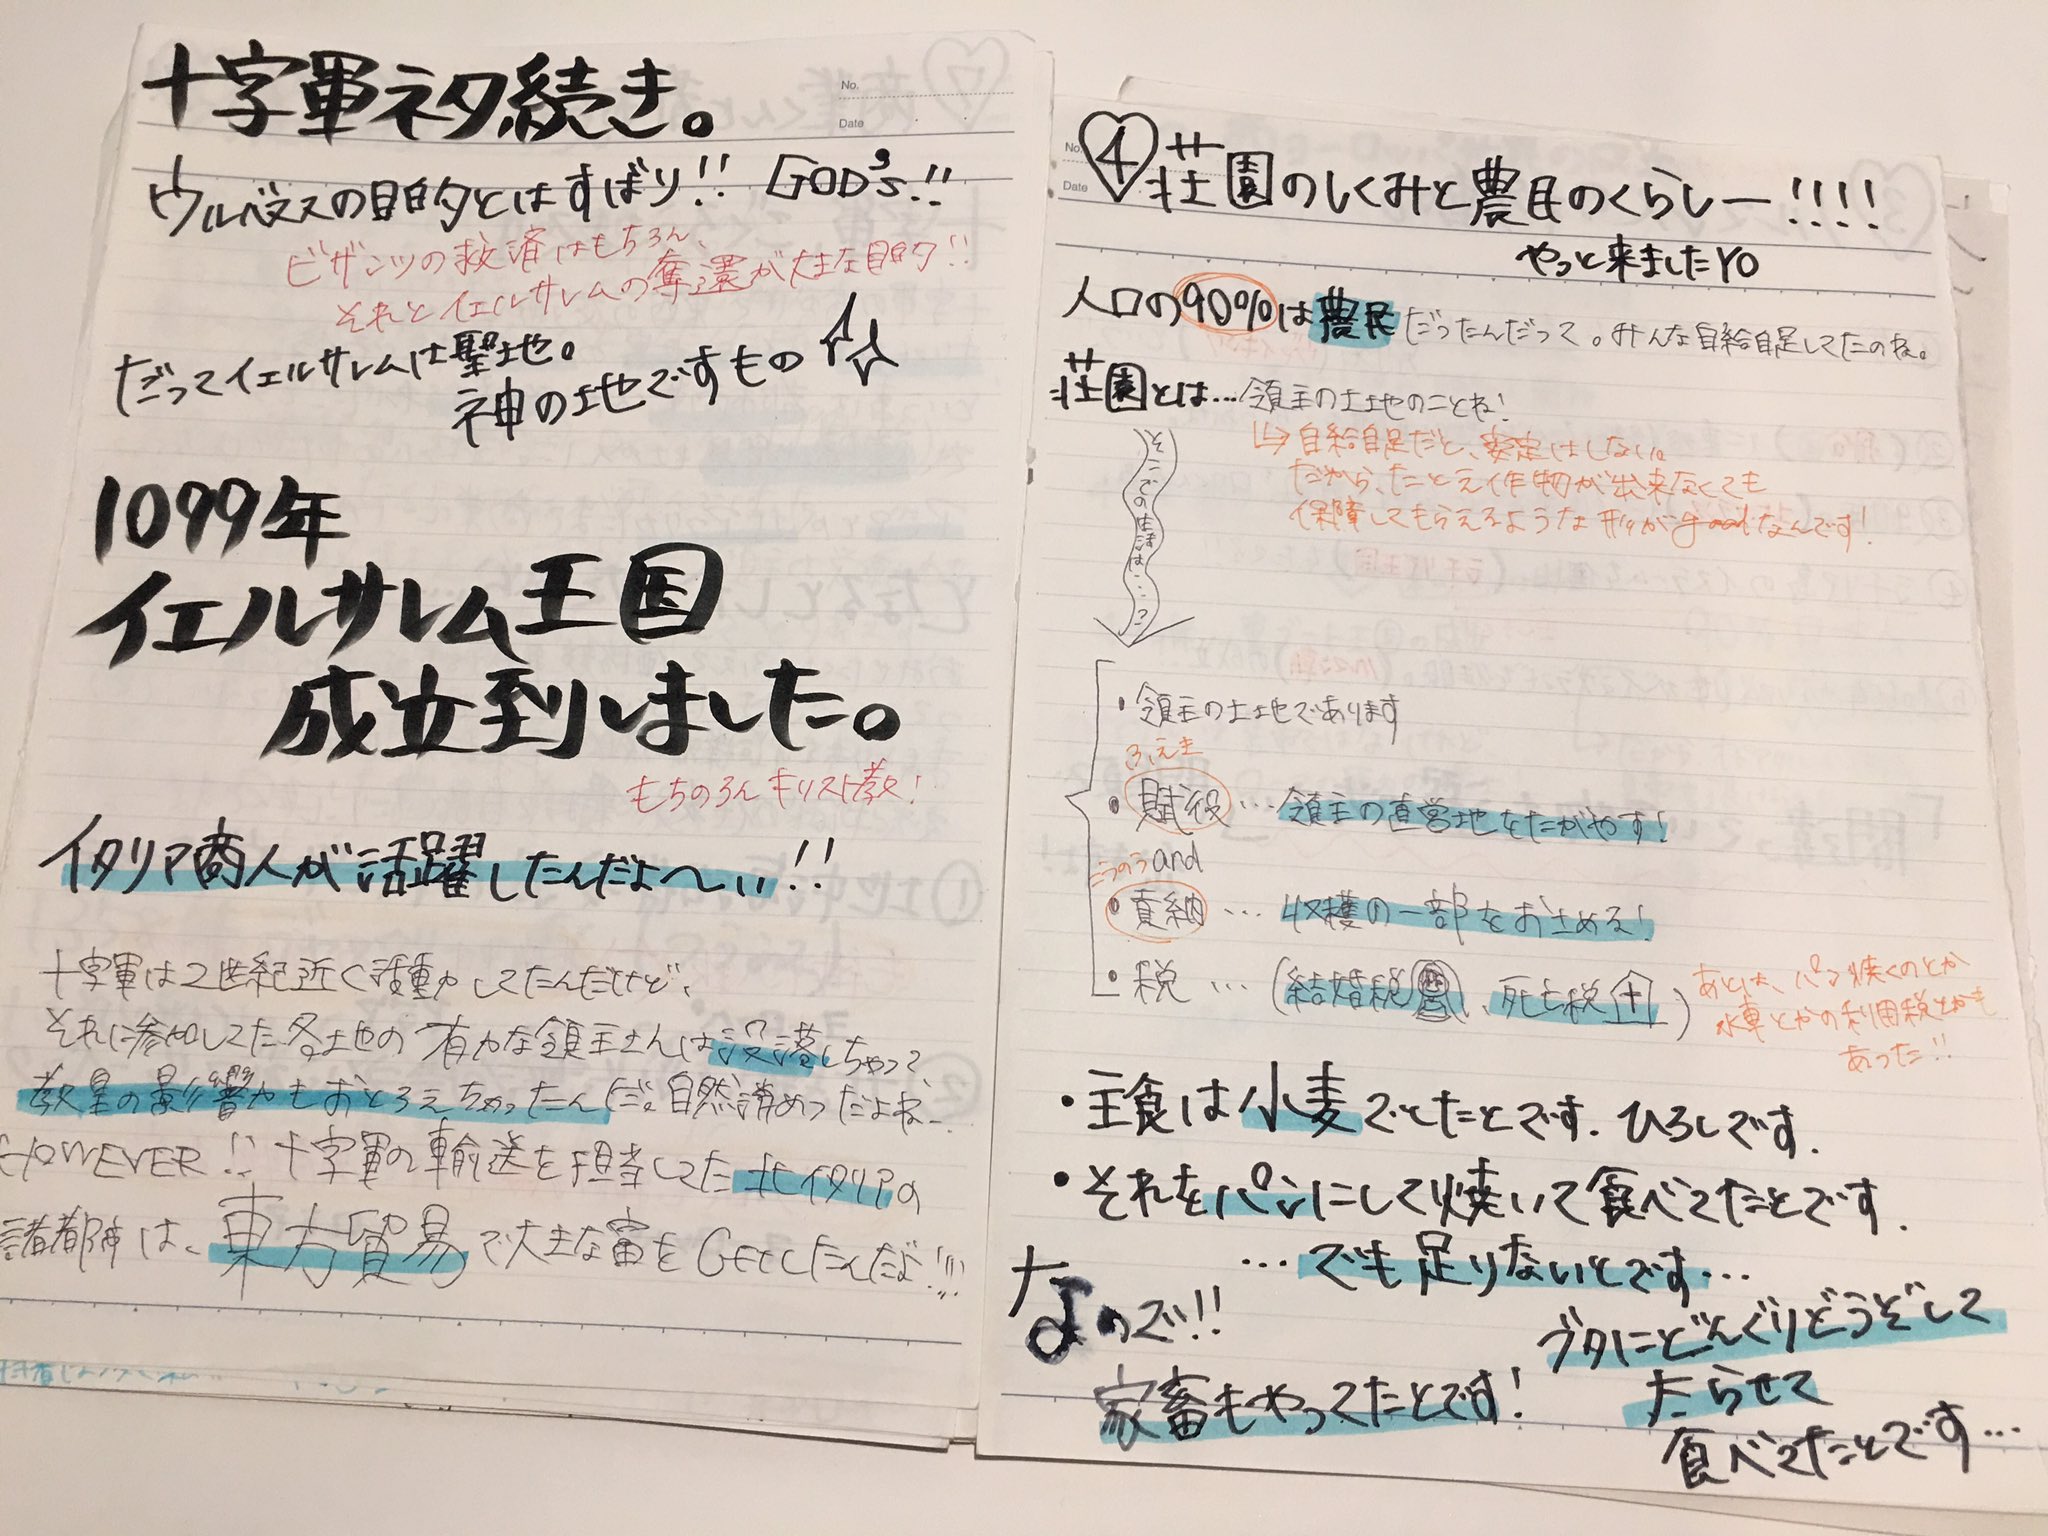 十字軍ネタ続き。
No.
Date
ウルバヌスの目的とはずばり!! GOD's!!
ビザンツの救済はもちろん、
それとイェルサレムの奪還が大きな目的!!
だってイェルサレムは聖地。
神の土地ですもの
1099年
イェルサレム王国
成立到しました。
もちのろんキリスト教!
イタリア商人が活躍したんだよ〜ぃぃ!!
十字軍は2世紀近く活動してたんだけど、
それに参加してた各土地の有力な領主さんは没落しちゃって、
教皇の影響力もおとろえちゃったんだ。自然消めつだよね…
HOWEVER!! 十字軍の輸送を担当してた北イタリアの
諸都市は、東方貿易で大きな富をGetしたんだよ!!!
No.
Date
4 荘園のしくみと農民のくらしー!!!!
やっと来ましたYO
人口の90%は農民だったんだって。みんな自給自足してたのね。
荘園とは…領主の土地のことね!
↳自給自足だと、安定はしない。
だから、たとえ作物が出来なくても
保障してもらえるような形がgoodなんです!
そこでの生活は…?
・領主の土地であります
ふえき
・賦役…領主の直営地をたがやす!
and
こうのう
・貢納…収穫の一部をおさめる!
・税…(結婚税、死亡税)
あとは、パン焼くのとか
水車とかの利用税とかも
あった!!
・主食は小麦でしたとです. ひろしです.
・それをパンにして焼いて食べてたとです.
…でも足りないとです…
なので!!
家畜もやってたとです!
ブタにどんぐりどうぞして
太らせて
食べてたとです…